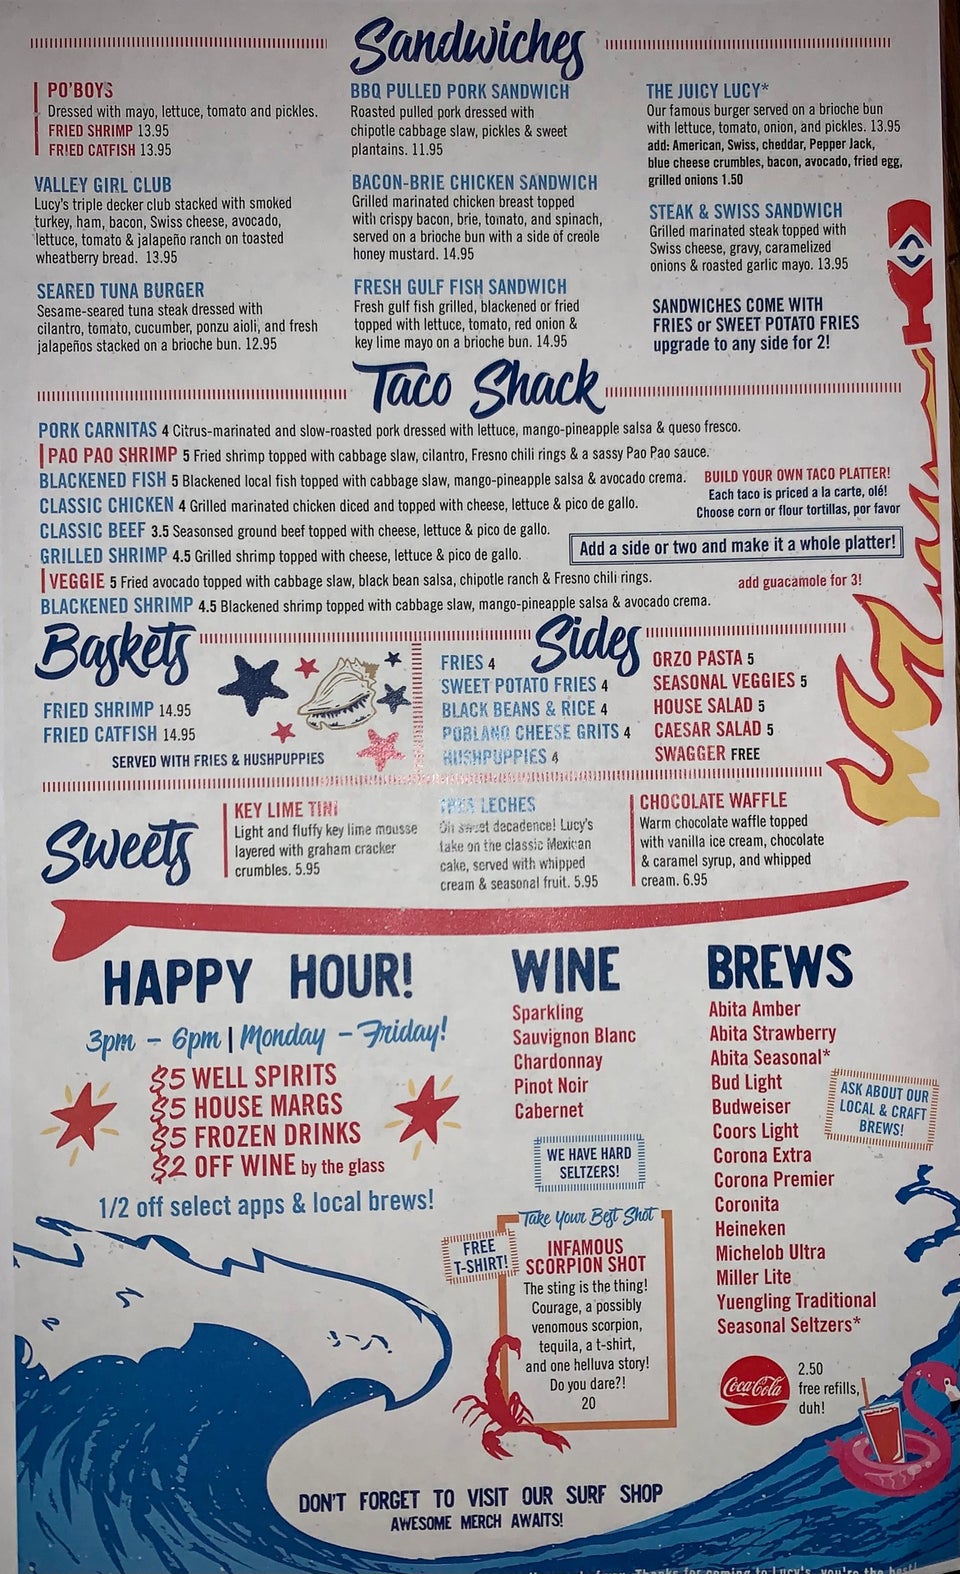 Sandwiches
PO'BOYS
Dressed with mayo, lettuce, tomato and pickles.
FRIED SHRIMP 13.95
FRIED CATFISH 13.95
VALLEY GIRL CLUB
Lucy's triple decker club stacked with smoked
turkey, ham, bacon, Swiss cheese, avocado,
lettuce, tomato & jalapeño ranch on toasted
wheatberry bread. 13.95
SEARED TUNA BURGER
Sesame-seared tuna steak dressed with
cilantro, tomato, cucumber, ponzu aioli, and fresh
jalapeños stacked on a brioche bun. 12.95
BBQ PULLED PORK SANDWICH
Roasted pulled pork dressed with
chipotle cabbage slaw, pickles & sweet
plantains. 11.95
BACON-BRIE CHICKEN SANDWICH
Grilled marinated chicken breast topped
with crispy bacon, brie, tomato, and spinach,
served on a brioche bun with a side of creole
honey mustard. 14.95
FRESH GULF FISH SANDWICH
Fresh gulf fish grilled, blackened or fried
topped with lettuce, tomato, red onion &
key lime mayo on a brioche bun. 14.95
THE JUICY LUCY*
Our famous burger served on a brioche bun
with lettuce, tomato, onion, and pickles. 13.95
add: American, Swiss, cheddar, Pepper Jack,
blue cheese crumbles, bacon, avocado, fried egg,
grilled onions 1.50
STEAK & SWISS SANDWICH
Grilled marinated steak topped with
Swiss cheese, gravy, caramelized
onions & roasted garlic mayo. 13.95
SANDWICHES COME WITH
FRIES or SWEET POTATO FRIES
upgrade to any side for 2!
Taco Shack
PORK CARNITAS 4 Citrus-marinated and slow-roasted pork dressed with lettuce, mango-pineapple salsa & queso fresco.
PAO PAO SHRIMP 5 Fried shrimp topped with cabbage slaw, cilantro, Fresno chili rings & a sassy Pao Pao sauce.
BLACKENED FISH 5 Blackened local fish topped with cabbage slaw, mango-pineapple salsa & avocado crema.
CLASSIC CHICKEN 4 Grilled marinated chicken diced and topped with cheese, lettuce & pico de gallo.
CLASSIC BEEF 3.5 Seasonsed ground beef topped with cheese, lettuce & pico de gallo.
GRILLED SHRIMP 4.5 Grilled shrimp topped with cheese, lettuce & pico de gallo.
VEGGIE 5 Fried avocado topped with cabbage slaw, black bean salsa, chipotle ranch & Fresno chili rings.
BLACKENED SHRIMP 4.5 Blackened shrimp topped with cabbage slaw, mango-pineapple salsa & avocado crema.
BUILD YOUR OWN TACO PLATTER!
Each taco is priced a la carte, olé!
Choose corn or flour tortillas, por favor
Add a side or two and make it a whole platter!
add guacamole for 3!
Baskets
FRIED SHRIMP 14.95
FRIED CATFISH 14.95
SERVED WITH FRIES & HUSHPUPPIES
Sides
FRIES 4
SWEET POTATO FRIES 4
BLACK BEANS & RICE 4
POBLANO CHEESE GRITS 4
HUSHPUPPIES 4
ORZO PASTA 5
SEASONAL VEGGIES 5
HOUSE SALAD 5
CAESAR SALAD 5
SWAGGER FREE
Sweets
KEY LIME TINI
Light and fluffy key lime mousse
layered with graham cracker
crumbles. 5.95
TRES LECHES
Oh sweet decadence! Lucy's
take on the classic Mexican
cake, served with whipped
cream & seasonal fruit. 5.95
CHOCOLATE WAFFLE
Warm chocolate waffle topped
with vanilla ice cream, chocolate
& caramel syrup, and whipped
cream. 6.95
HAPPY HOUR!
3pm - 6pm | Monday - Friday!
$5 WELL SPIRITS
$5 HOUSE MARGS
$5 FROZEN DRINKS
$2 OFF WINE by the glass
1/2 off select apps & local brews!
WINE
Sparkling
Sauvignon Blanc
Chardonnay
Pinot Noir
Cabernet
WE HAVE HARD
SELTZERS!
Take Your Best Shot
FREE
T-SHIRT!
INFAMOUS
SCORPION SHOT
The sting is the thing!
Courage, a possibly
venomous scorpion,
tequila, a t-shirt,
and one helluva story!
Do you dare?!
20
BREWS
Abita Amber
Abita Strawberry
Abita Seasonal*
Bud Light
Budweiser
Coors Light
Corona Extra
Corona Premier
Coronita
Heineken
Michelob Ultra
Miller Lite
Yuengling Traditional
Seasonal Seltzers*
ASK ABOUT OUR
LOCAL & CRAFT
BREWS!
Coca-Cola
2.50
free refills,
duh!
DON'T FORGET TO VISIT OUR SURF SHOP
AWESOME MERCH AWAITS!
Thanks for coming to Lucy's, you're the best!